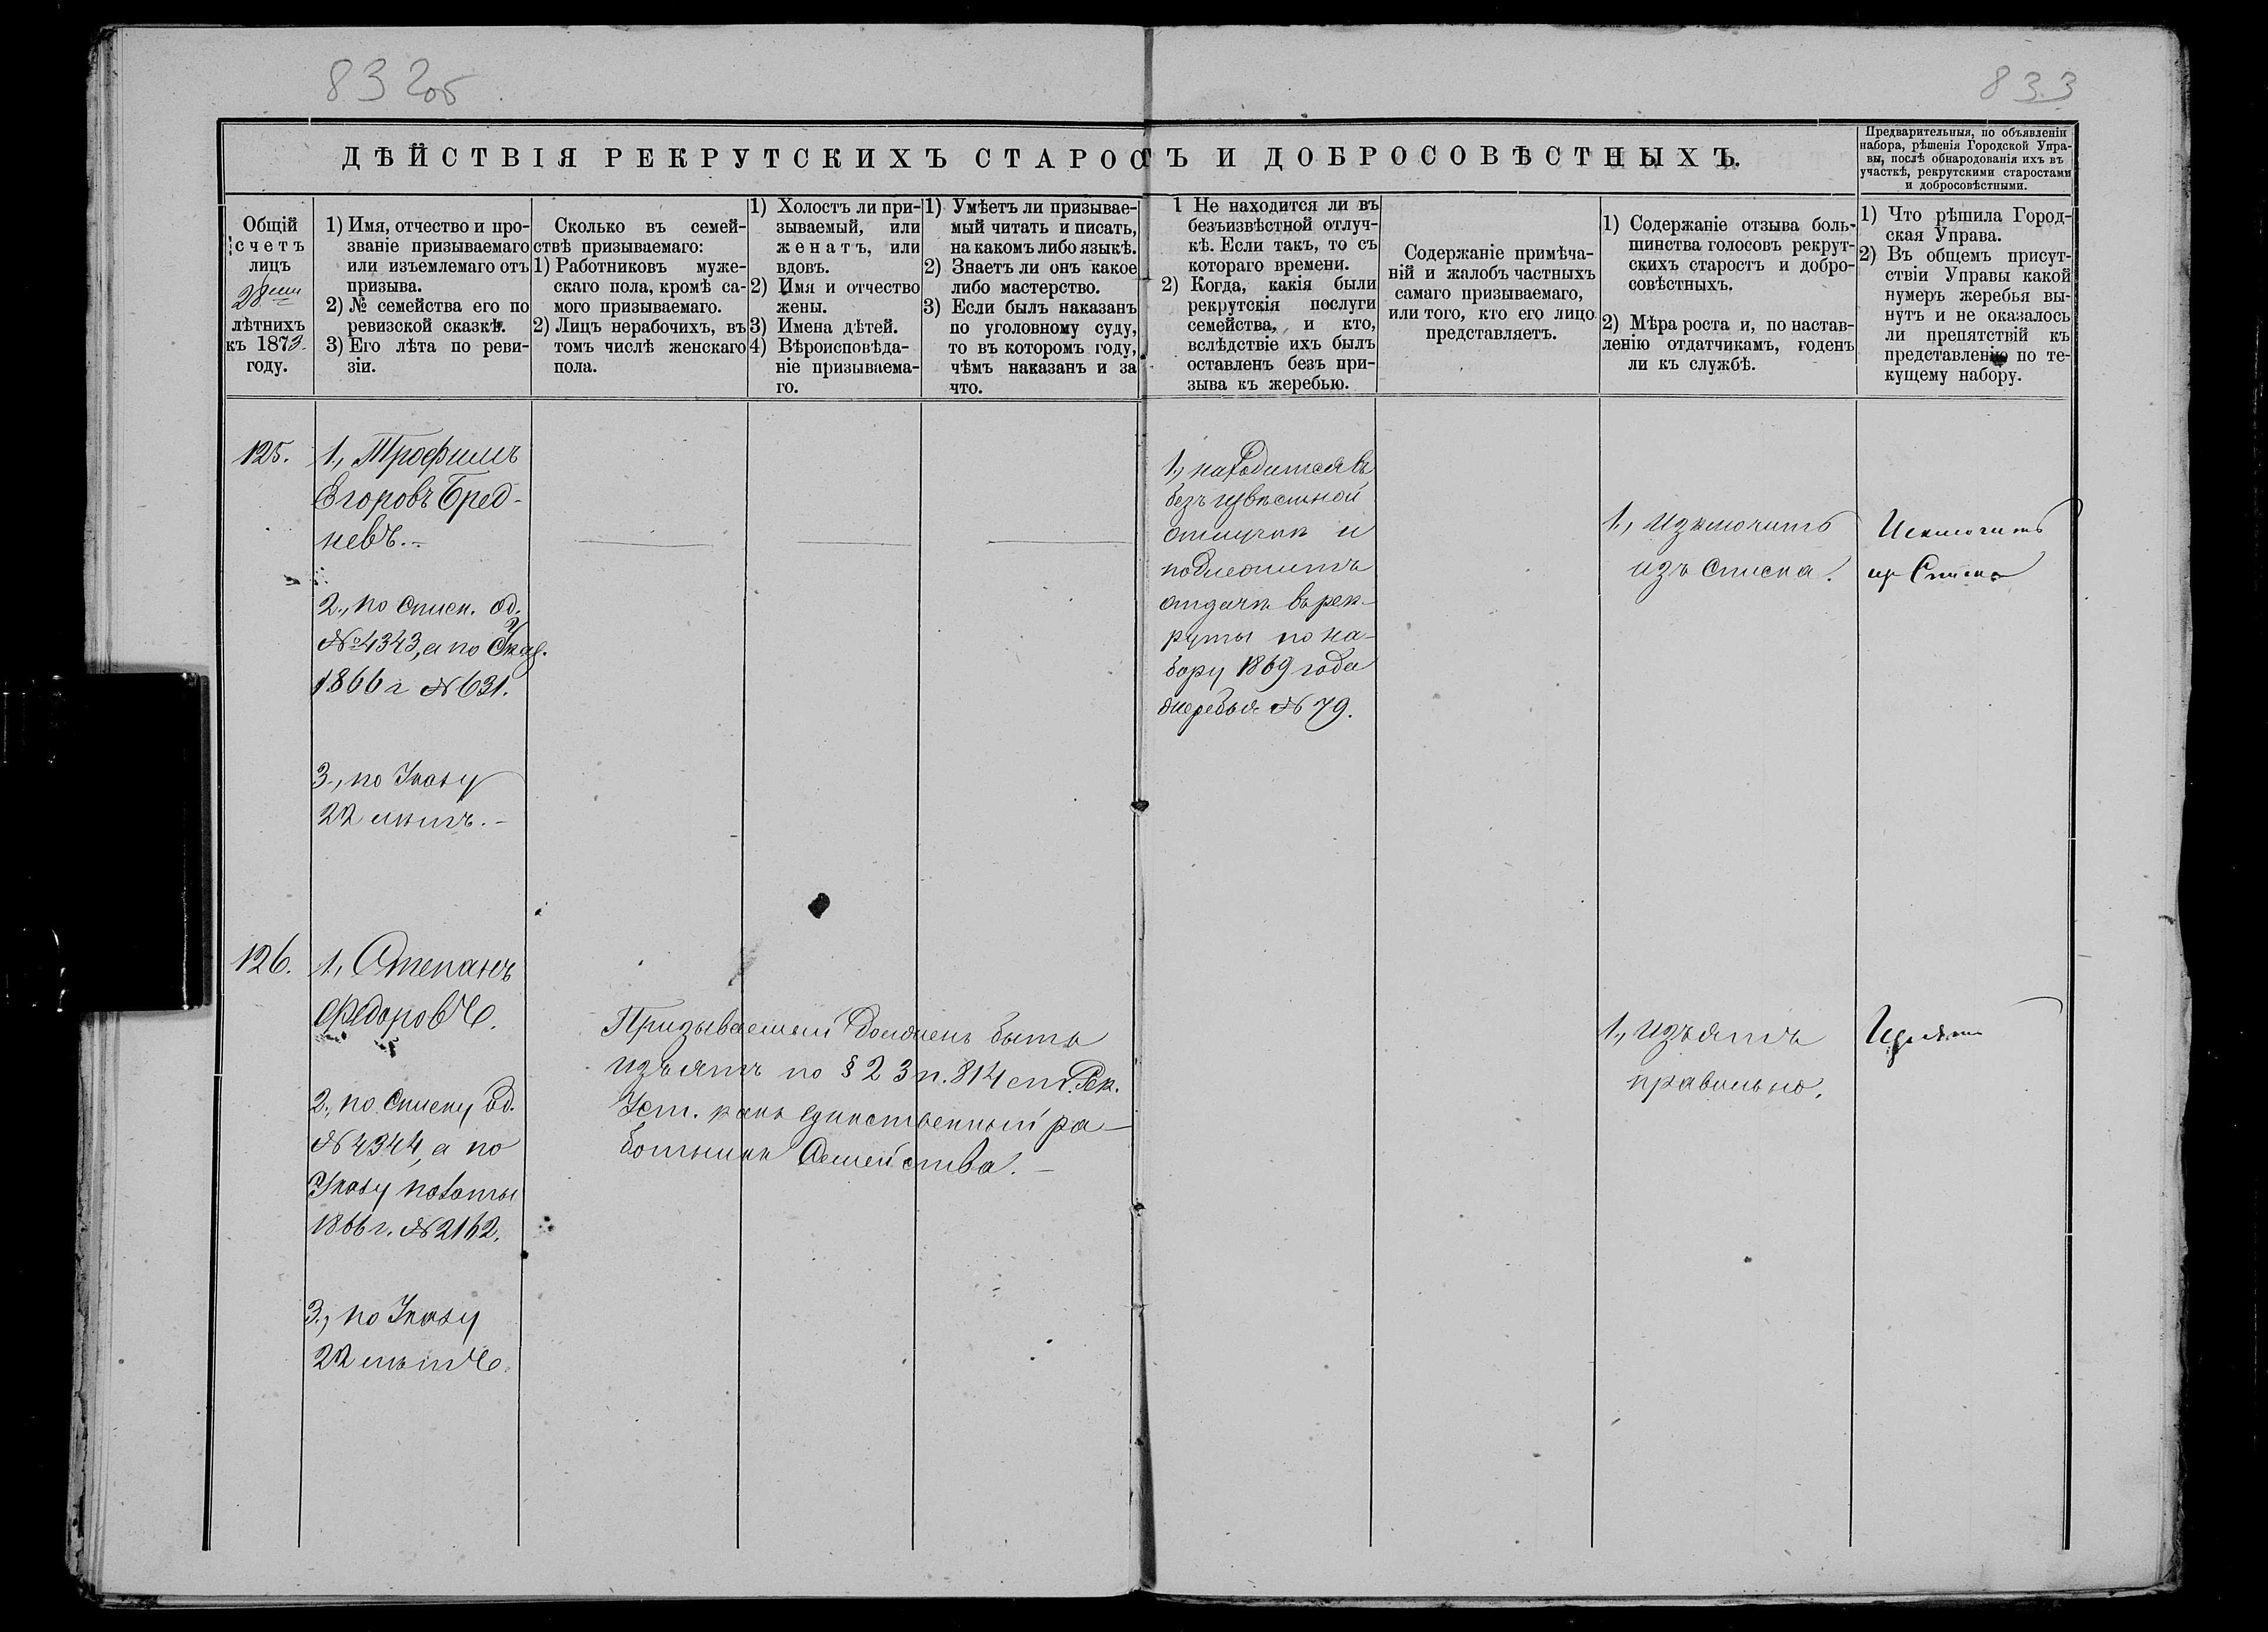 832об
833
ДѢЙСТВІЯ РЕКРУТСКИХЪ СТАРОСТЪ И ДОБРОСОВѢСТНЫХЪ.
Предварительныя, по объявленіи
набора, рѣшенія Городской Упра-
вы, послѣ обнародованія ихъ въ
участкѣ, рекрутскими старостами
и добросовѣстными.
Общій
счетъ
лицъ
28ми
лѣтнихъ
къ 1873
году.
1) Имя, отчество и про-
званіе призываемаго
или изъемлемаго отъ
призыва.
2) № семейства его по
ревизской сказкѣ.
3) Его лѣта по реви-
зіи.
Сколько въ семей-
ствѣ призываемаго:
1) Работниковъ муже-
скаго пола, кромѣ са-
мого призываемаго.
2) Лицъ нерабочихъ, въ
томъ числѣ женскаго
пола.
1) Холостъ ли при-
зываемый, или
женатъ, или
вдовъ.
2) Имя и отчество
жены.
3) Имена дѣтей.
4) Вѣроисповѣда-
ніе призываема-
го.
1) Умѣетъ ли призывае-
мый читать и писать,
на какомъ либо языкѣ.
2) Знаетъ ли онъ какое
либо мастерство.
3) Если былъ наказанъ
по уголовному суду,
то въ которомъ году,
чѣмъ наказанъ и за
что.
1 Не находится ли въ
безъизвѣстной отлуч-
кѣ. Если такъ, то съ
котораго времени.
2) Когда, какія были
рекрутскія послуги
семейства, и кто,
вслѣдствіе ихъ былъ
оставленъ безъ при-
зыва къ жеребью.
Содержаніе примѣча-
ній и жалобъ частныхъ
самаго призываемаго,
или того, кто его лицо
представляетъ.
1) Содержаніе отзыва боль-
шинства голосовъ рекрут-
скихъ старостъ и добро-
совѣстныхъ.
2) Мѣра роста и, по настав-
ленію отдатчикамъ, годенъ
ли къ службѣ.
1) Что рѣшила Город-
ская Управа.
2) Въ общемъ присут-
ствіи Управы какой
нумеръ жеребья вы-
нутъ и не оказалось
ли препятствій къ
представленію по те-
кущему набору.
125.
1., Трофимъ
Егоровъ Бред-
невъ.-
2., по списк. од.
№ 4343, а по
1866 г № 631.
3., по Указу
22 лѣтъ.-
1., находится въ
безъизвѣстной
отлучкѣ и
подлежитъ
отдачѣ въ рек-
руты по на-
бору 1869 года
жеребья № 79.
1., Изключить
изъ списка.
Исключить
из Списка
126.
1., Степанъ
Федоровъ.
2., по списку од.
№ 4344, а по
Указу палаты
1866 г. № 2162.
3., по Указу
22 лѣтъ.
Призываемый долженъ быть
изъятъ по § 2 3 п. 814 ст. Рек.
Уст. какъ единственный ра-
ботникъ семейства.-
1., Изъятъ
правильно.
Изъять